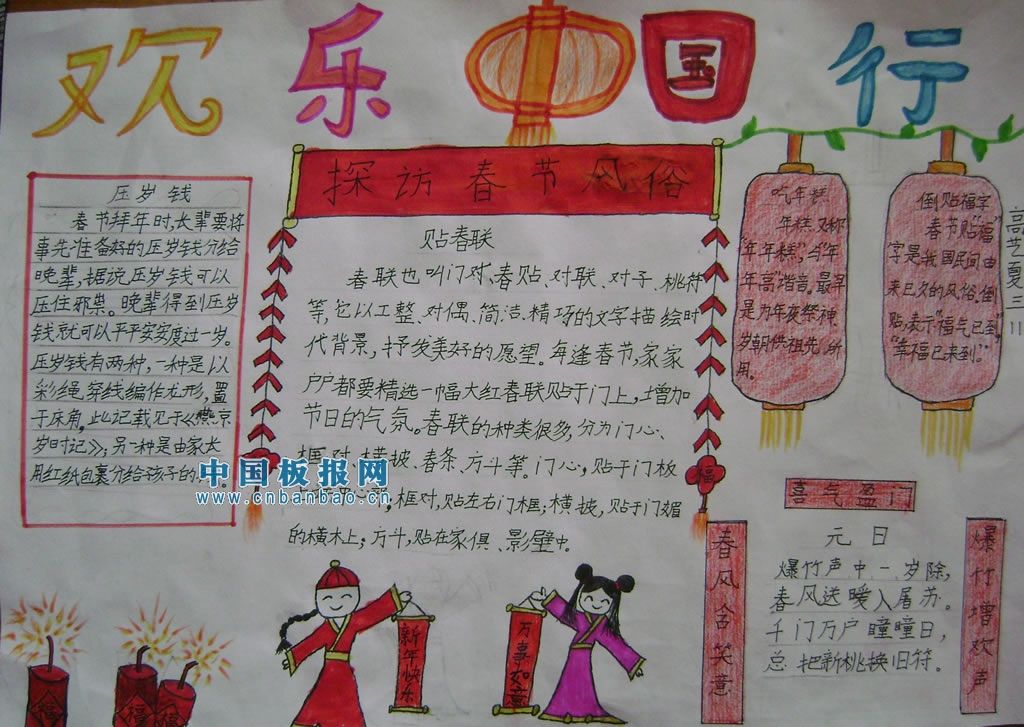 欢乐中国行
探访春节风俗
压岁钱
春节拜年时,长辈要将
事先准备好的压岁钱分给
晚辈,据说压岁钱可以
压住邪祟。晚辈得到压岁
钱就可以平平安安度过一岁。
压岁钱有两种,一种是以
彩绳穿线编作龙形,置
于床角。此记载见于《燕京
岁时记》;另一种是由家长
用红纸包裹分给孩子的
贴春联
春联也叫门对、春贴、对联、对子、桃符
等,它以工整、对偶、简洁、精巧的文字描绘时
代背景,抒发美好的愿望。每逢春节,家家
户户都要精选一幅大红春联贴于门上,增加
节日的气氛。春联的种类很多,分为门心、
框对、横披、春条、方斗等。门心,贴于门板
框对,贴左右门框;横披,贴于门媚
的横木上;方斗,贴在家俱、影壁中。
吃年糕
年糕又称
“年年糕”,与“年
年高”谐音,最早
是为年夜祭神、
岁朝供祖先所
用。
倒贴福字
春节贴“福”
字是我国民间由
来已久的风俗。倒
贴,表示“福气已到”
“幸福已来到。”
高艺夏三
福
中国板报网
www.cnbanbao.cn
喜气盈门
春风含笑意
爆竹增欢声
元日
爆竹声中一岁除,
春风送暖入屠苏。
千门万户瞳瞳日,
总把新桃换旧符。
新年快乐
万事如意
福
福
福